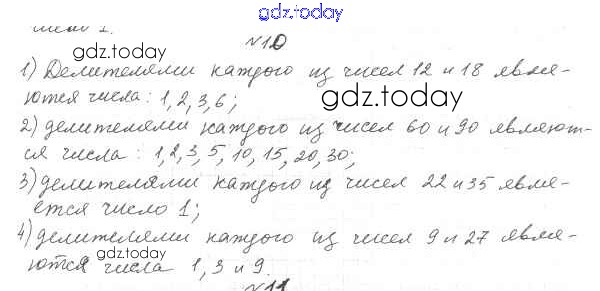 gdz.today
gdz.today
№10
1) Делителями каждого из чисел 12 и 18 явля-
ются числа: 1, 2, 3, 6;
gdz.today
2) делителями каждого из чисел 60 и 90 являют-
ся числа: 1, 2, 3, 5, 10, 15, 20, 30;
3) делителями каждого из чисел 22 и 35 явля-
ется число 1;
4) делителями каждого из чисел 9 и 27 явля-
ются числа 1, 3 и 9.
gdz.today
№11